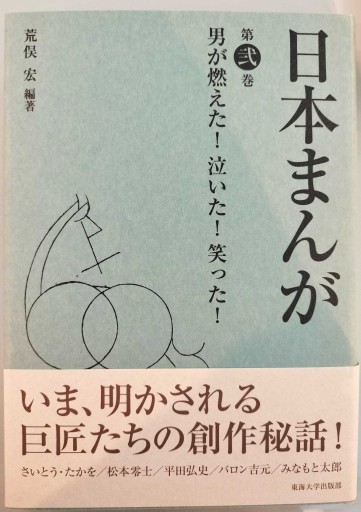 日本まんが
第弐巻
男が燃えた！泣いた！笑った！
荒俣 宏 編著
いま、明かされる
巨匠たちの創作秘話！
さいとう・たかを／松本零士／平田弘史／バロン吉元／みなもと太郎
東海大学出版部